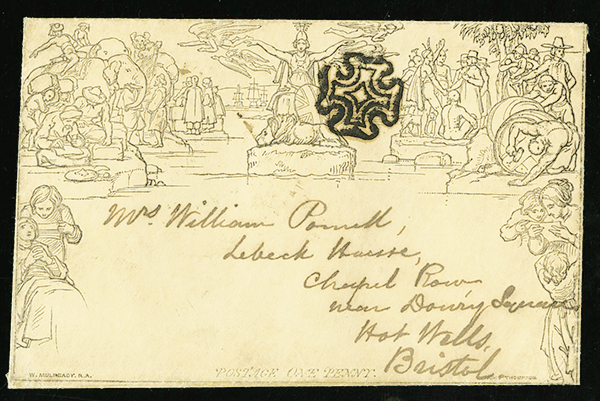 Mrs William Powell,
Lebeck House,
Chapel Row
near Dowry Square
Hot Wells,
Bristol
W. MULREADY. R.A.
POSTAGE ONE PENNY.